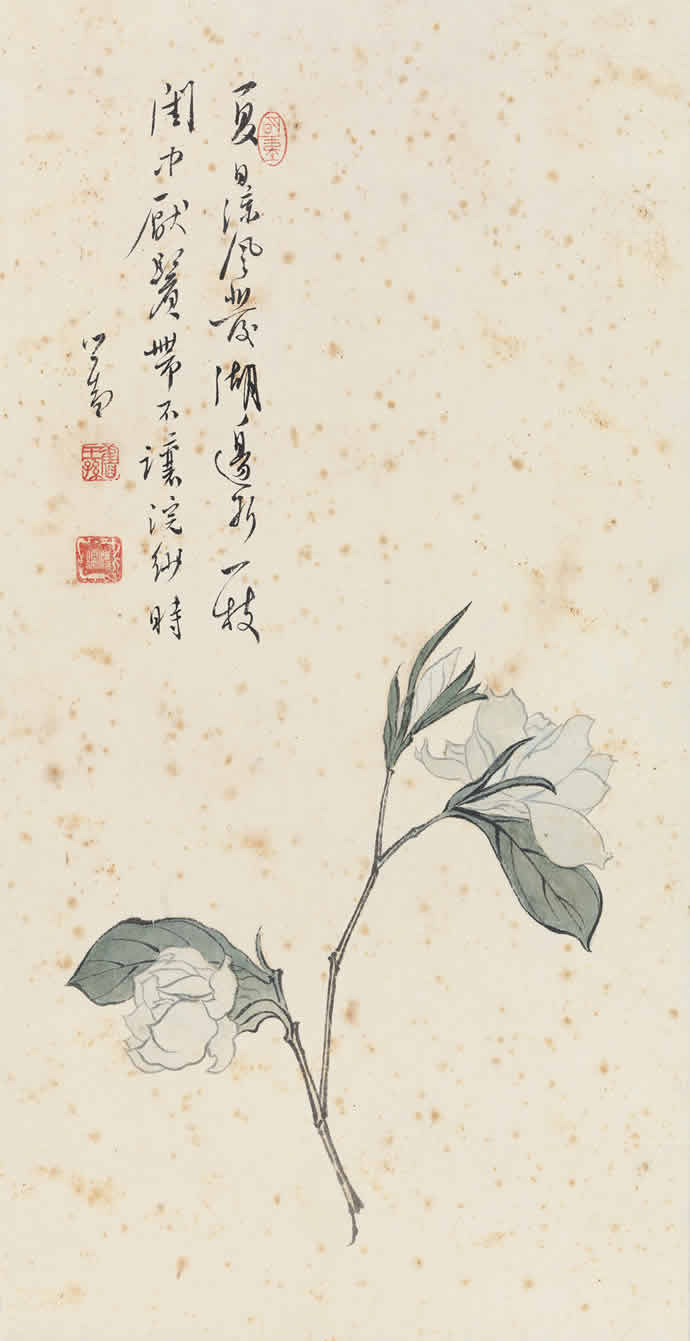 夏日涼風發湖邊折一枝
閨中厭鬢帶不讓浣紗時
心畬
舊王孫